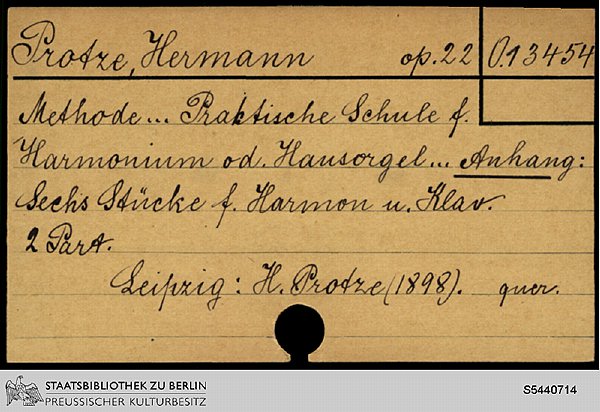 Protze, Hermann op. 22 O.13454
Methode... Praktische Schule f.
Harmonium od. Hausorgel... Anhang:
Sechs Stücke f. Harmon u. Klav.
2 Part.
Leipzig: H. Protze (1898). quer.
STAATSBIBLIOTHEK ZU BERLIN
PREUSSISCHER KULTURBESITZ
S5440714